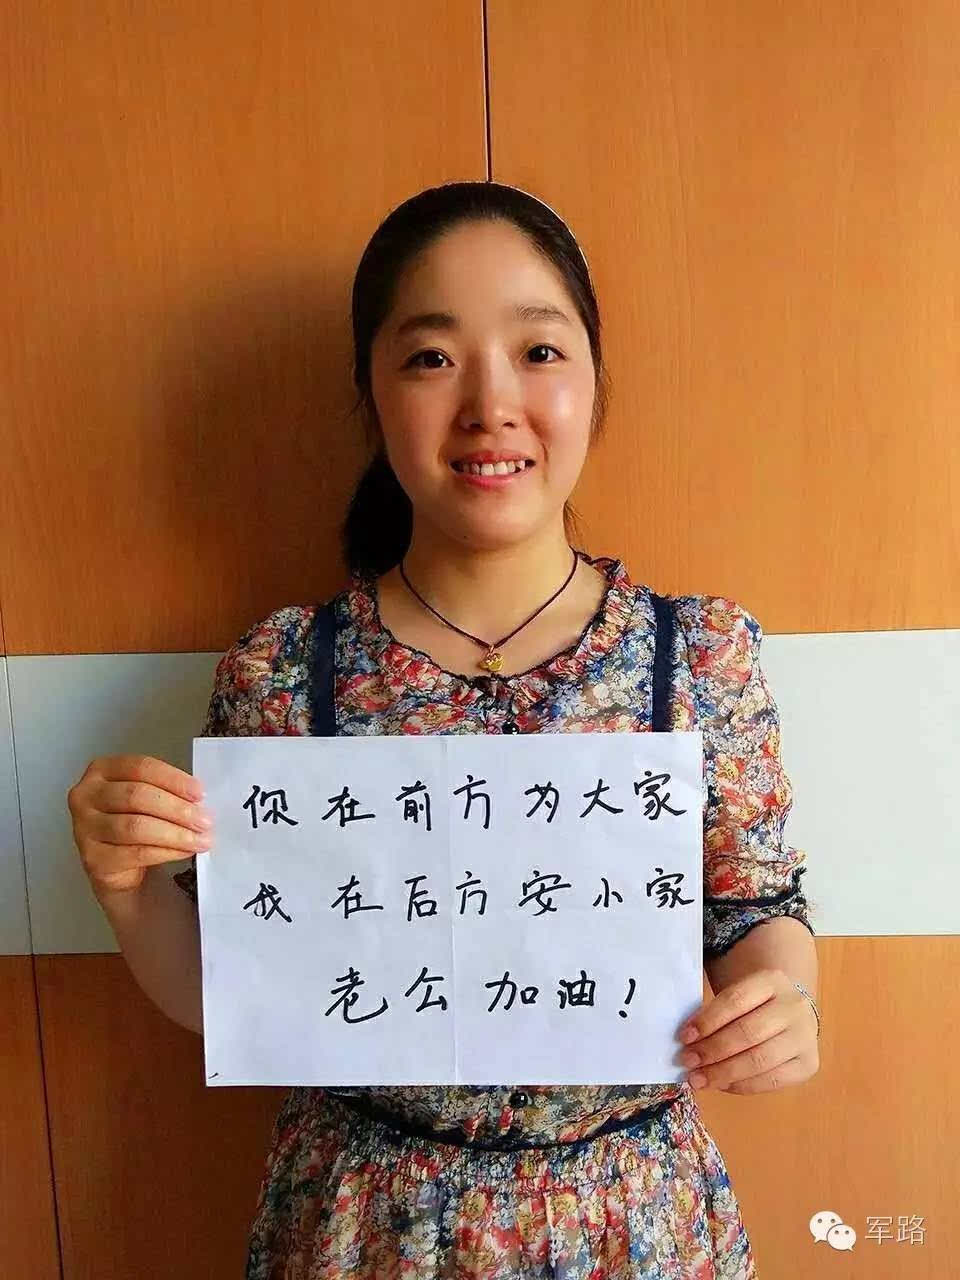 你在前方为大家
我在后方安小家
老公加油！
军路